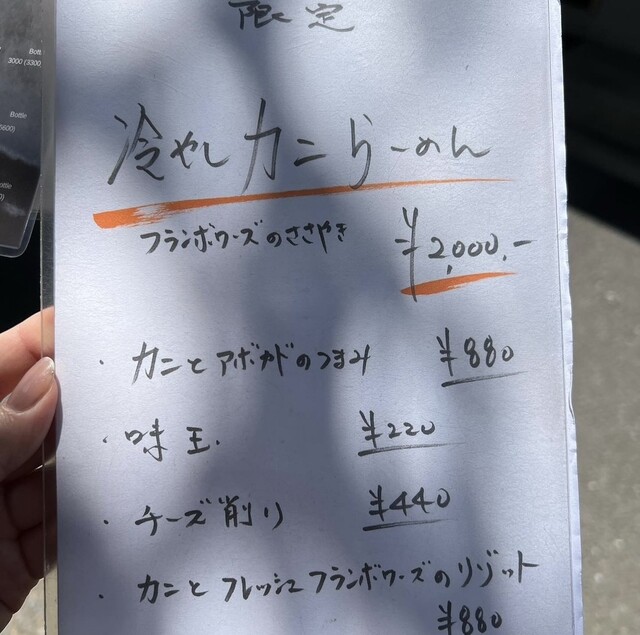 Bott
3000 (3300
Bottle
5600)
Bottle
限定
冷やしカニらーめん
フランボワーズのささやき
¥2,000.-
・カニとアボカドのつまみ ¥880
・味玉. ¥220
・チーズ削り ¥440
・カニとフレッシュフランボワーズのリゾット
¥880